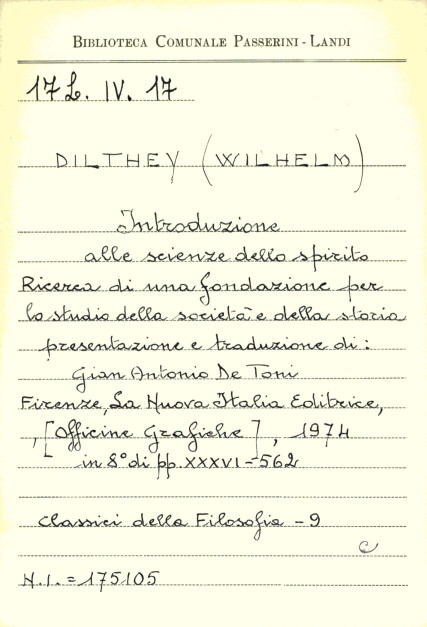 BIBLIOTECA COMUNALE PASSERINI - LANDI
17 L. IV. 17
DILTHEY (WILHELM)
Introduzione
alle scienze dello spirito
Ricerca di una fondazione per
lo studio della società e della storia
presentazione e traduzione di:
Gian Antonio De Toni
Firenze, La Nuova Italia Editrice,
, [Officine Grafiche], 1974
in 8° di pp. XXXVI-562
Classici della Filosofia - 9
C
N.I. = 175105